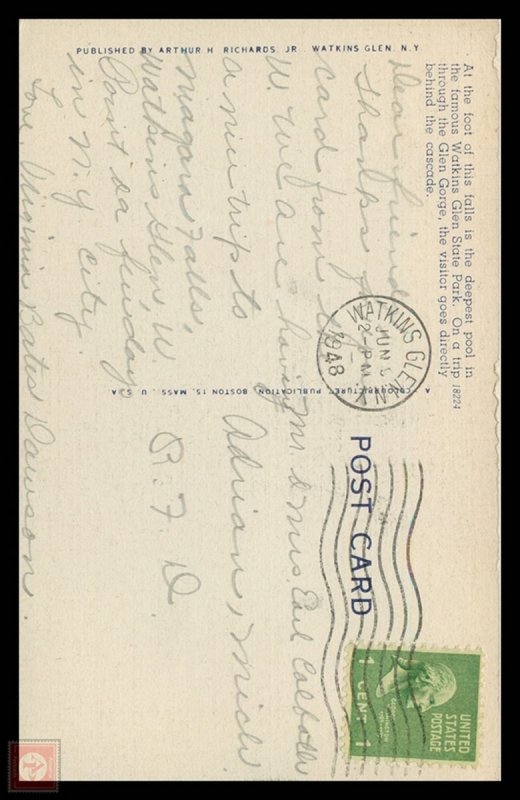 At the foot of this falls is the deepest pool in
the famous Watkins Glen State Park. On a trip
through the Glen Gorge, the visitor goes directly
behind the cascade.
18224
Dear friend
thanks for
card from
W. We are having
a nice trip to
Falls,
Watkins Glen, W.
Point da few days
in N.Y. City.
Love, Virginia Bates Dawson.
PUBLISHED BY ARTHUR H. RICHARDS, JR. WATKINS GLEN, N.Y.
A "COLOURPICTURE" PUBLICATION, BOSTON 15, MASS., U.S.A.
POST CARD
WATKINS GLEN N.Y.
JUN 9
2 - PM
1948
UNITED
STATES
POSTAGE
1 CENT 1
Mr. & Mrs. Earl
Adrian, Mich.
R. F. D.